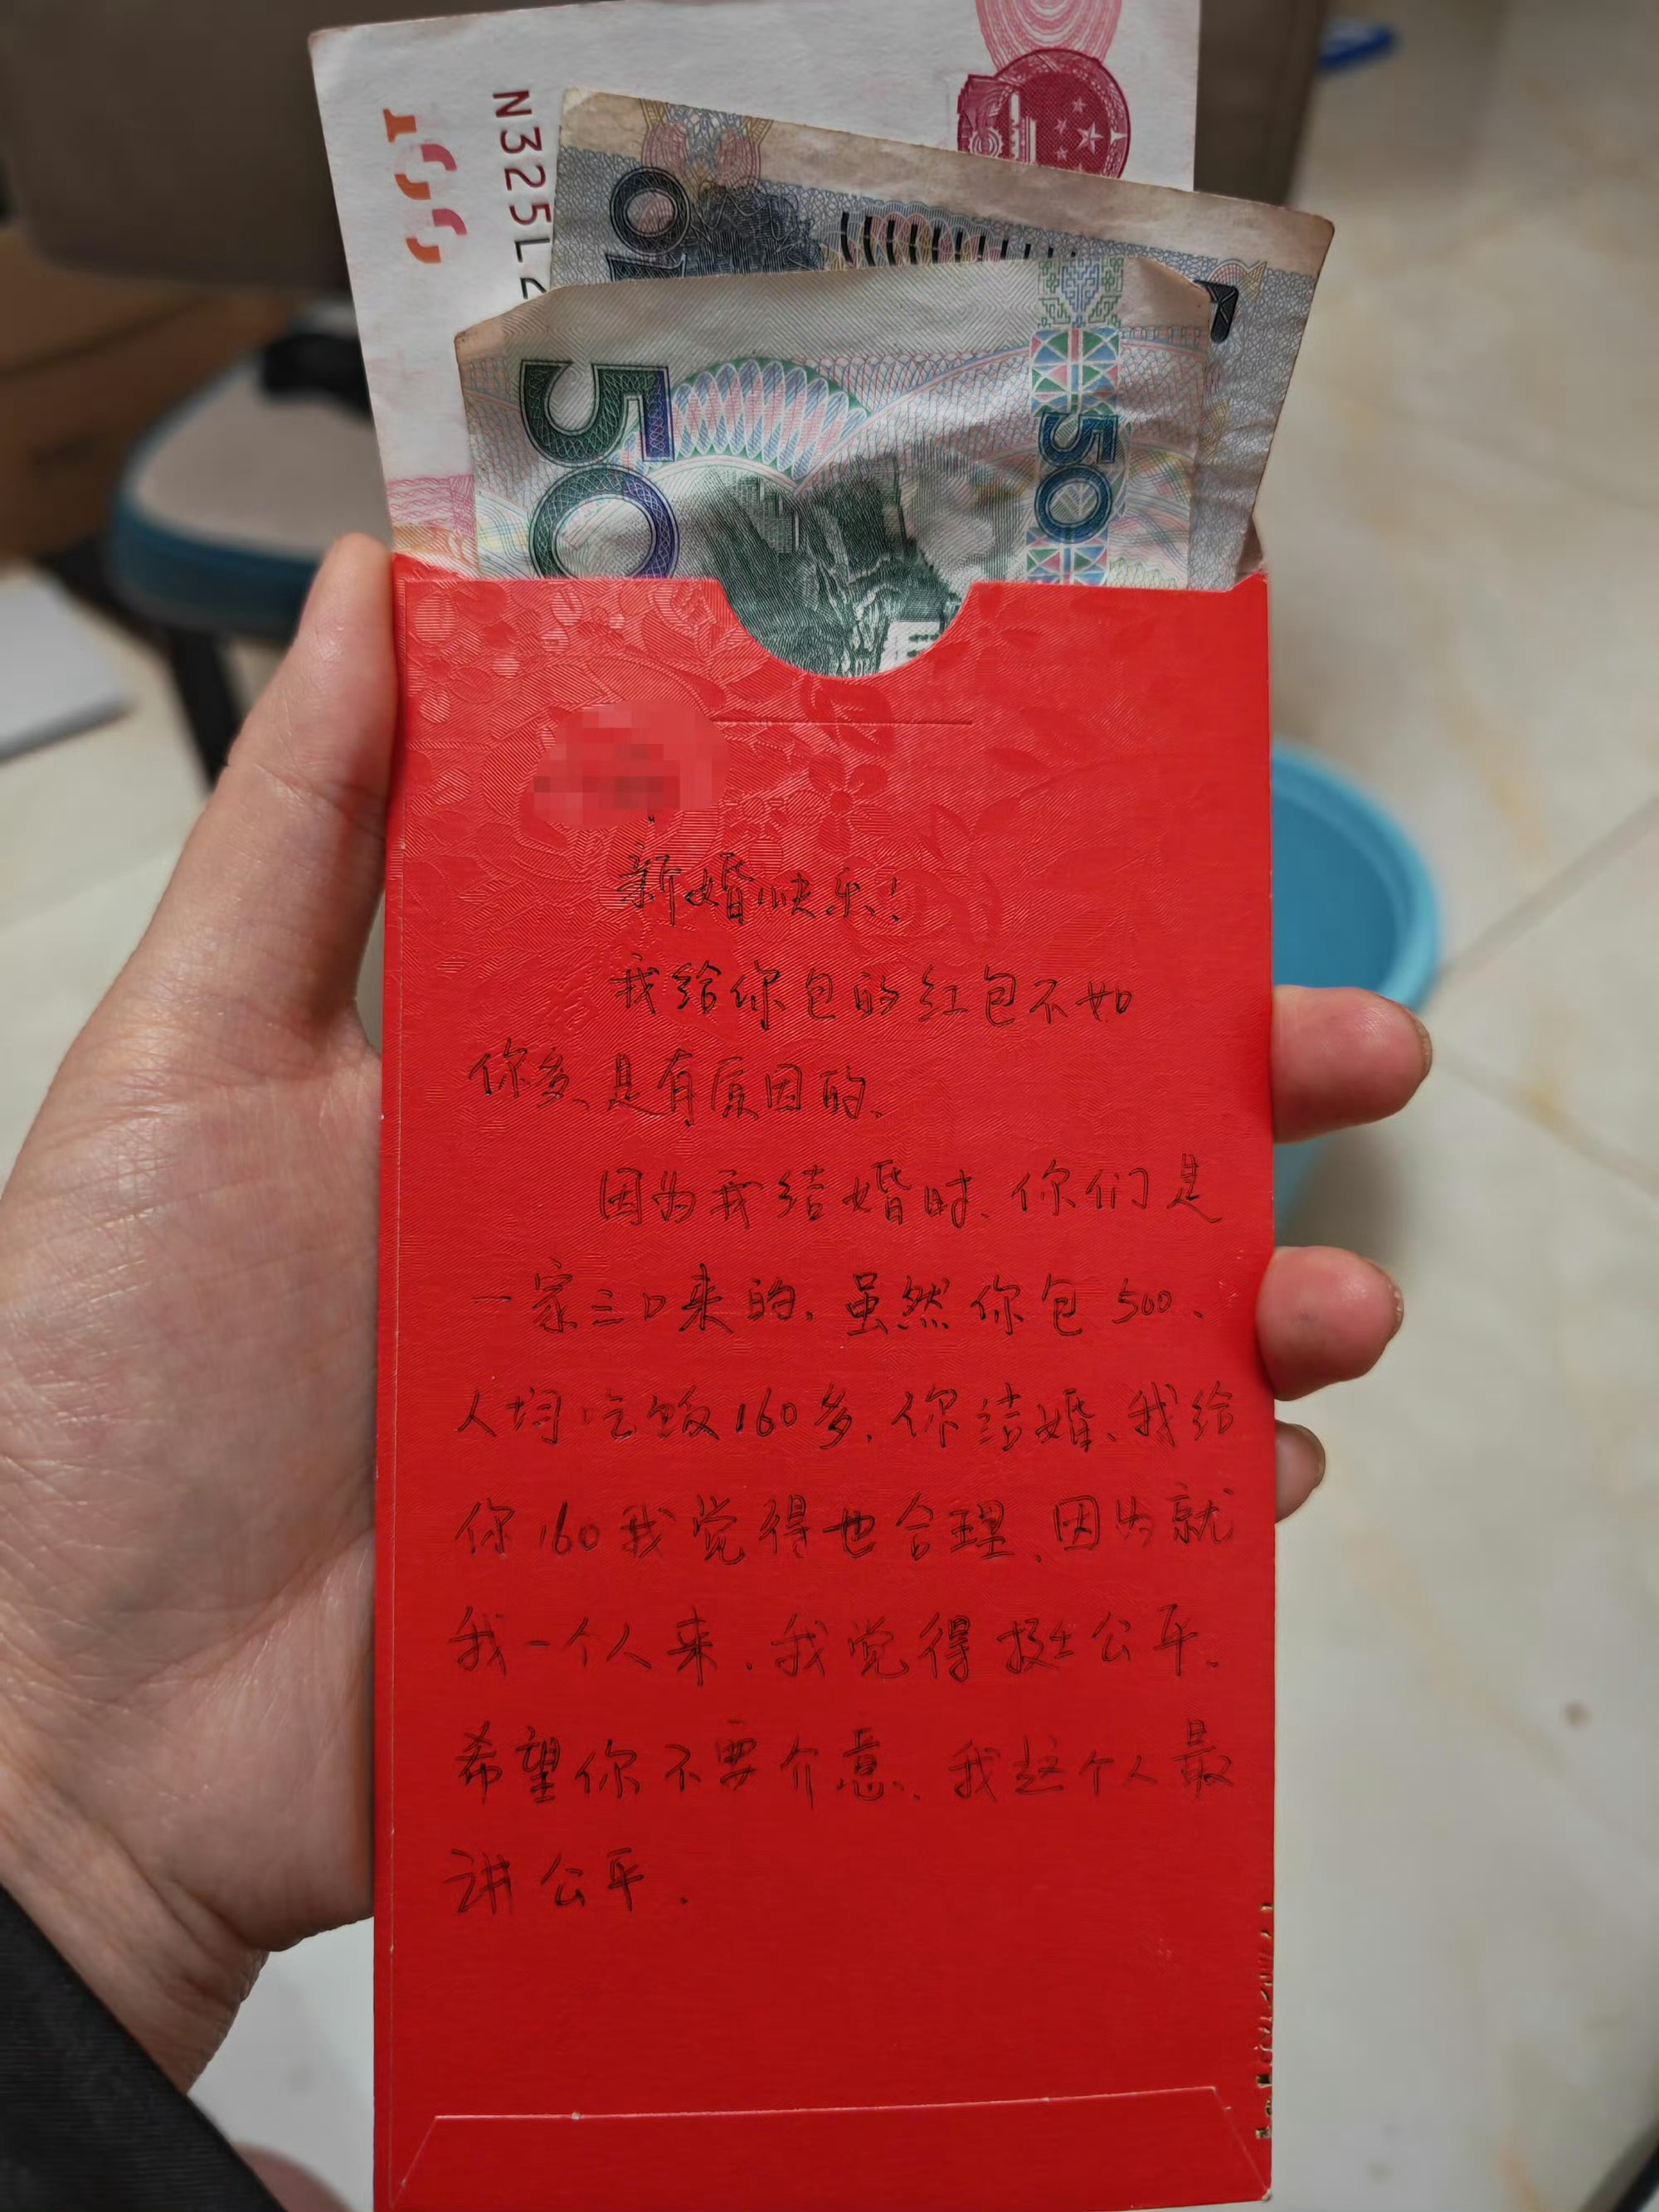 N325L2
10
1
50
50
新婚快乐!
我给你包的红包不如
你多、是有原因的、
因为我结婚时、你们是
一家三口来的、虽然你包500、
人均吃饭160多、你结婚、我给
你160我觉得也合理、因为就
我一个人来、我觉得挺公平、
希望你不要介意、我这个人最
讲公平.